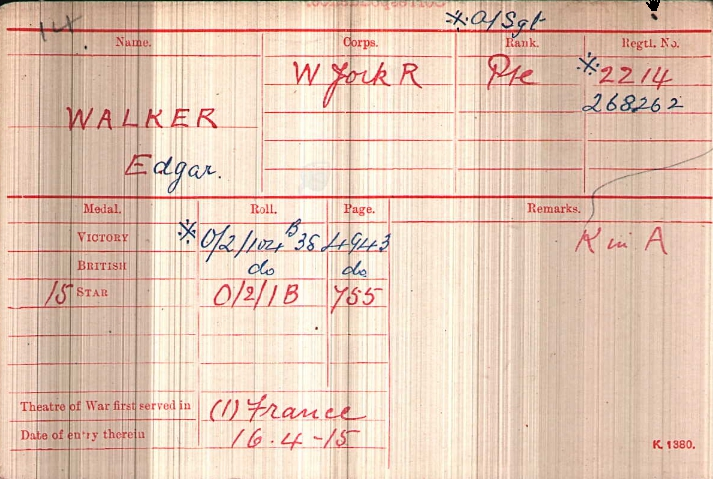 14
※ A/Sgt
Name. Corps. Rank. Regtl. No.
W York R Pte ※ 2214
268262
WALKER
Edgar.
Medal. Roll. Page. Remarks.
VICTORY ※ O/2/104 B 38 4943 K in A
BRITISH do do
15 STAR O/2/1B 755
Theatre of War first served in (1) France
Date of entry therein 16.4-15
K. 1380.